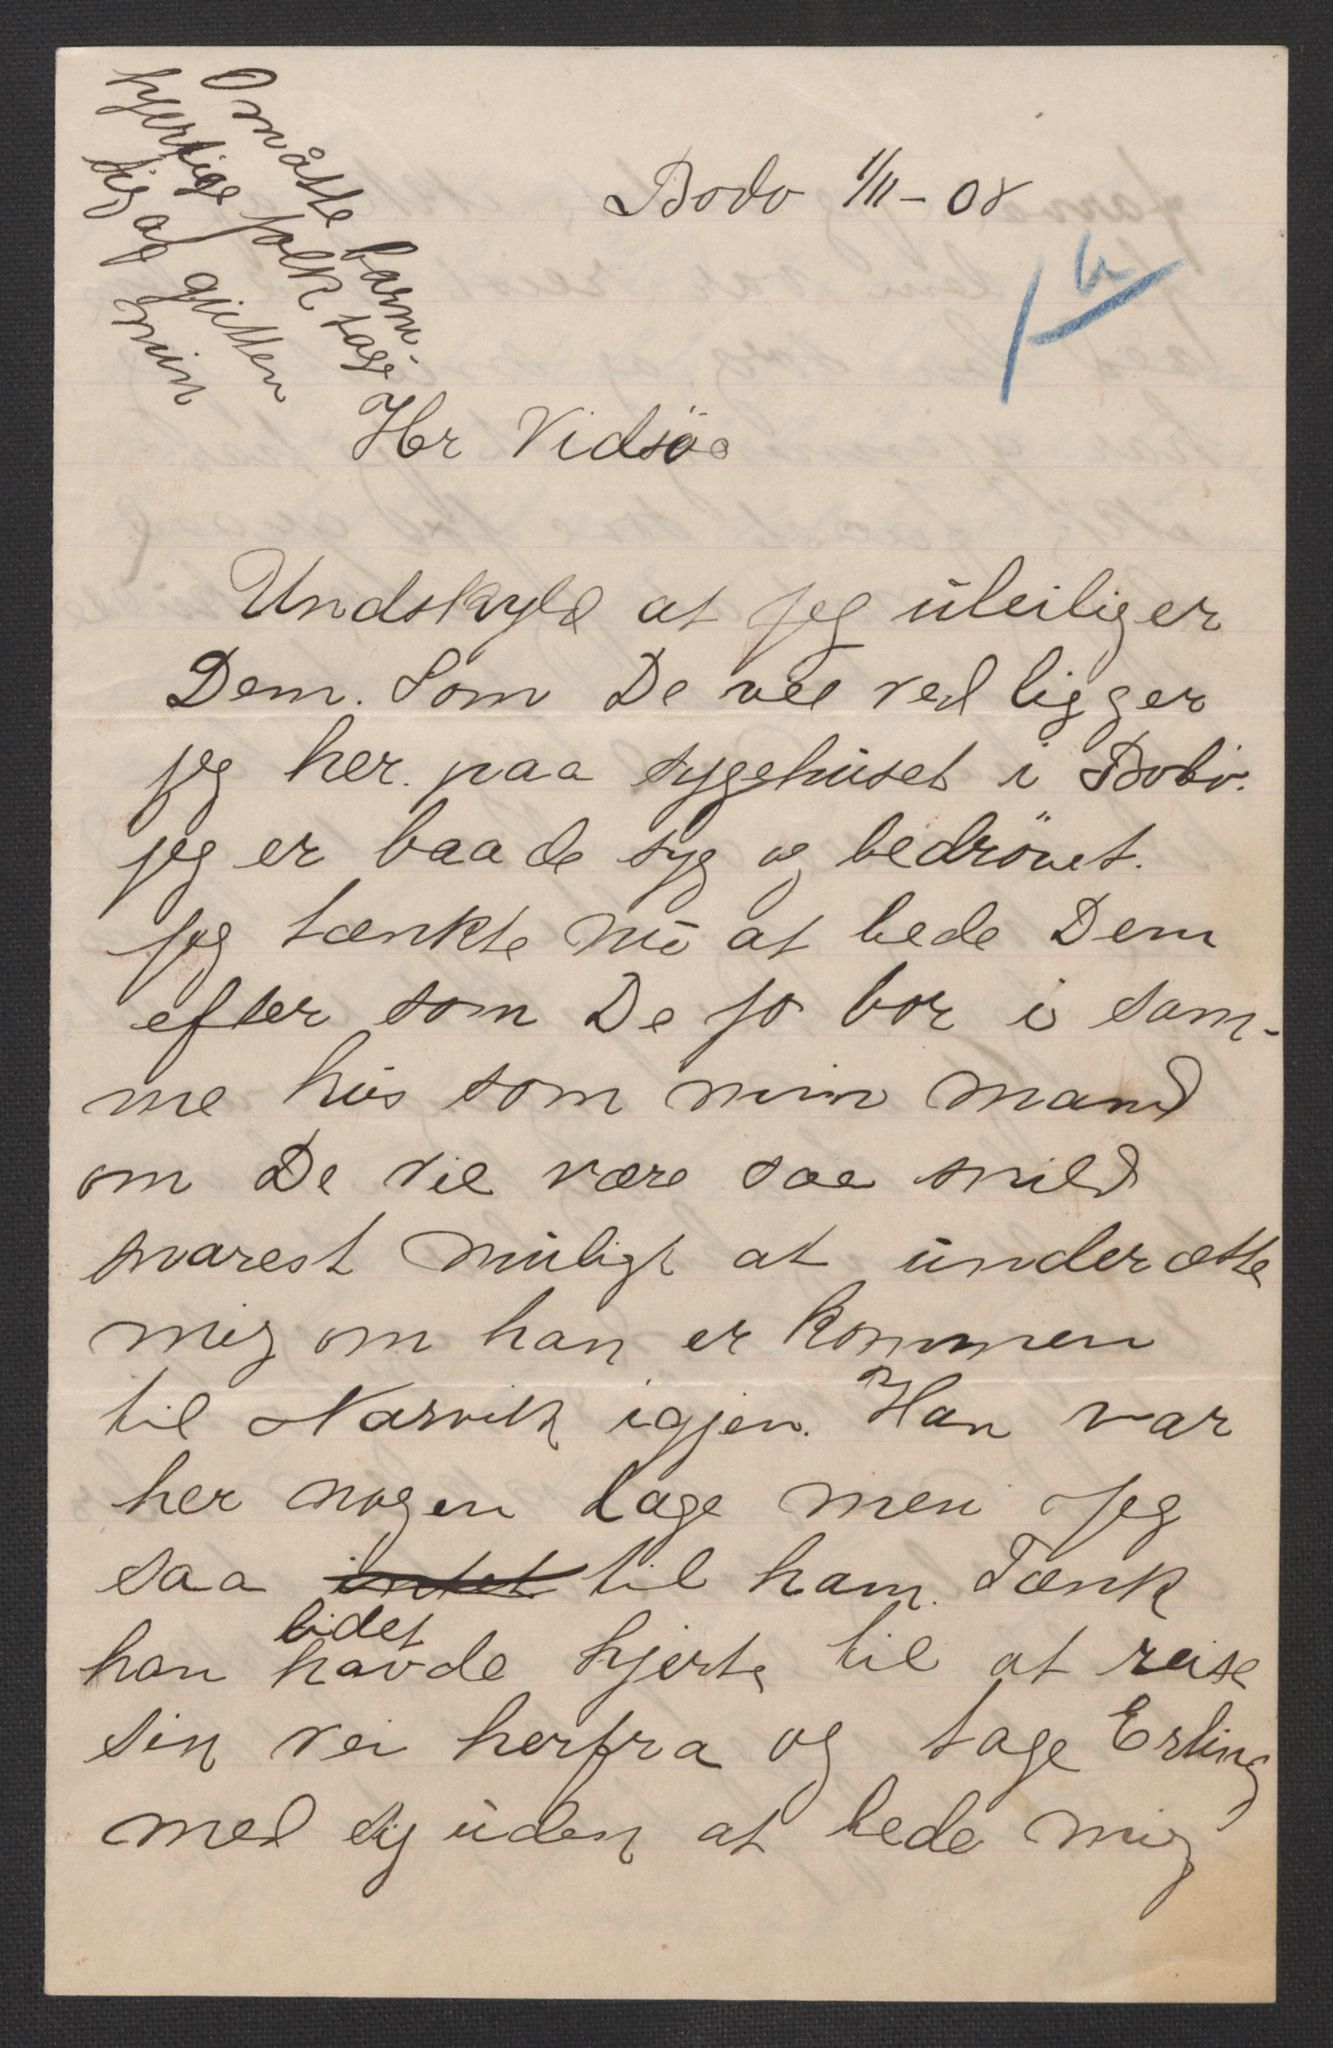 O måtte barm-
hjertige folk tage
sig af gutten
min
Bodø 1/11-08
Hr Vidsø
Undskyld at jeg uleiliger
Dem. Som De vel ved ligger
jeg her paa sygehuset i Bodø.
jeg er baade syg og bedrövet.
jeg tænkte nu at bede Dem
efter som De jo bor i sam-
me hus som min mand
om De vil være saa snild
snarest muligt at underætte
mig om han er kommen
til Narvik igjen. Han var
her nogen dage men jeg
saa intet til ham. Tænk
lidet
han havde hjerte til at reise
sin vei herfra og tage Erling
med sig uden at lede mig